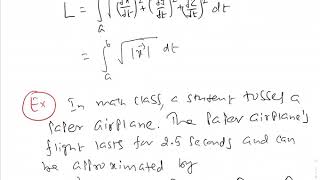 L = ∫ₐ √((dx/dt)² + (dy/dt)² + (dz/dt)²) dt
= ∫ₐᵇ √|x⃗'| dt
Ex In math class, a student tosses a
Paper airplane. The Paper airplane's
flight lasts for 2.5 seconds and can
be approximated by